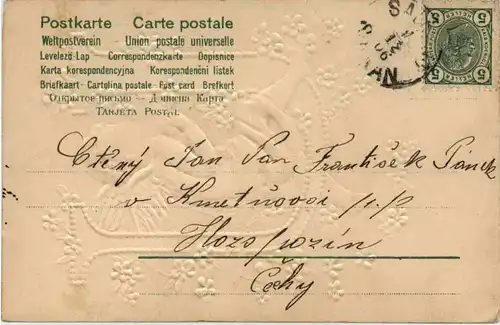 Postkarte Carte postale
Weltpostverein - Union postale universelle
Levelező Lap - Correspondenzkarte - Dopisnice
Karta korespondencyjna - Korespondenční listek
Briefkaart - Cartolina postale - Post card - Brefkort
Открытое письмо - Дописна Карта
Tarjeta Postal
Ctěný Pan Pan František Pánek
v
Čechy
5 5
5 5